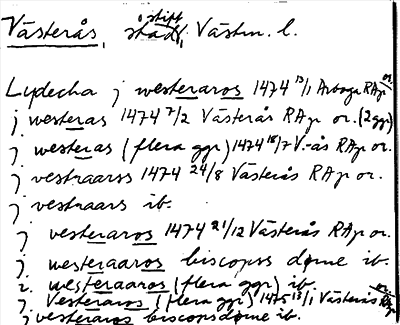 Västerås, stift, stad, Västm. l.
Lydecha j westeraros 1474 13/1 Arboga RAp or.
j westeras 1474 7/2 Västerås RAp or. (2 ggr)
j westeras (flera ggr) 1474 18/7 V-ås RAp or.
j vestraarss 1474 24/8 Västerås RAp or.
j vestraars ib.
j vesteraros 1474 21/12 Västerås RAp or.
j westeraaros biscopss døme ib.
i westeraaros (flera ggr) ib.
j Vesteraros (flera ggr) 1475 13/1 Västerås RAp or.
j vesteraros biscopsdøme ib.